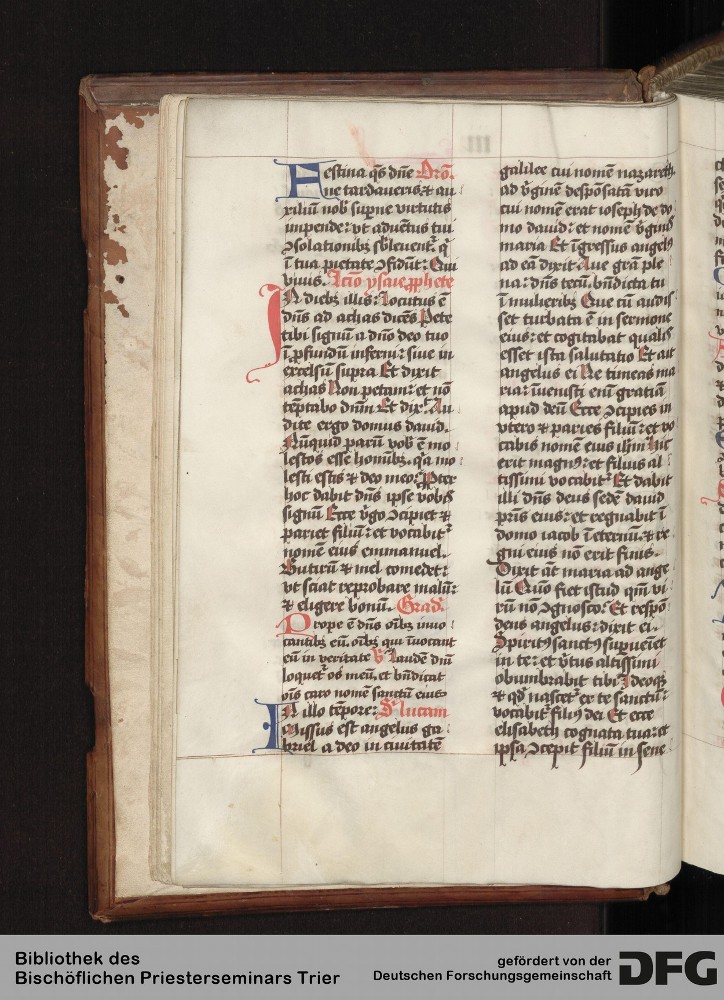 Festina qs dne Oro.
ne tardaueris et au
xiliu nob supne virtutis
impende: vt aduetus tui
ɔsolationibz subleuent' q
i tua pietate ɔfidut: Qui
viuis. Lectio ysaie pphete
In diebz illis: Locutus e
dns ad achas dices Pete
tibi signu a dno deo tuo
i pfundu inferni: siue in
excelsu supra Et dixit
achas Non petam: et no
teptabo dnm Et dix' Au
dite ergo domus dauid.
Nuquid paru vob e mo
lestos esse homibz. qa mo
lesti estis et deo meo: Pter
hoc dabit dns ipse vobis
signu Ecce vgo ɔcipiet et
pariet filiu: et vocabit'
nomē eius emmanuel.
Butiru et mel comedet:
vt sciat reprobare malu:
et eligere bonu. Grad.
Prope e dns oibz inuo
cantibz eu. oibz qui iuocant
eu in veritate V Laude dni
loquet' os meu. et bndicat
ois caro nomē sanctu eius
In illo tepore: S lucam
Missus est angelus ga
briel a deo in ciuitatē
III
galilee cui nomē nazareth.
ad vginē despōsatā viro
cui nomē erat ioseph de do
mo dauid: et nomē vginis
maria Et igressus angelus
ad eā dixit Aue grā ple
na: dns tecū. bndicta tu
i mulieribz Que cū audis
set turbata ē in sermone
eius: et cogitabat qualis
esset ista salutatio Et ait
angelus ei Ne timeas ma
ria: iuenisti eni gratiā
apud deū Ecce ɔcipies in
vtero et paries filiū: et vo
cabis nomē eius ihm Hic
erit magnus: et filius al
tissimi vocabit' Et dabit
illi dns deus sedē dauid
pris eius: et regnabit i
domo iacob i eternū. et re
gni eius nō erit finis.
Dixit āt maria ad ange
lū Quo fiet istud qm vi
rū nō ɔgnosco: Et respō
dens angelus: dixit ei.
Spiritus sanctus supueniet
in te: et vtus altissimi
obumbrabit tibi Ideoqz
et qd nascet' ex te sanctū:
vocabit' filius dei Et ecce
elisabeth cognata tua: et
ipsa ɔcepit filiū in sene
Bibliothek des
Bischöflichen Priesterseminars Trier
gefördert von der
Deutschen Forschungsgemeinschaft
DFG